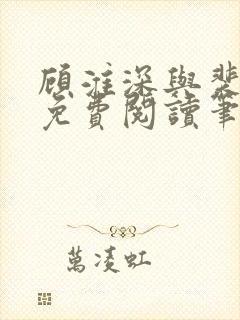 顾淮深与裴
免費閱讀筆
萬凌虹